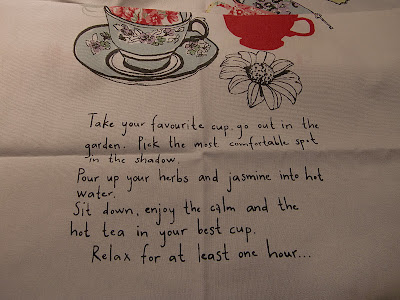 Take your favourite cup, go out in the
garden. Pick the most comfortable spot
in the shadow.
Pour up your herbs and jasmine into hot
water.
Sit down, enjoy the calm and the
hot tea in your best cup.
Relax for at least one hour...